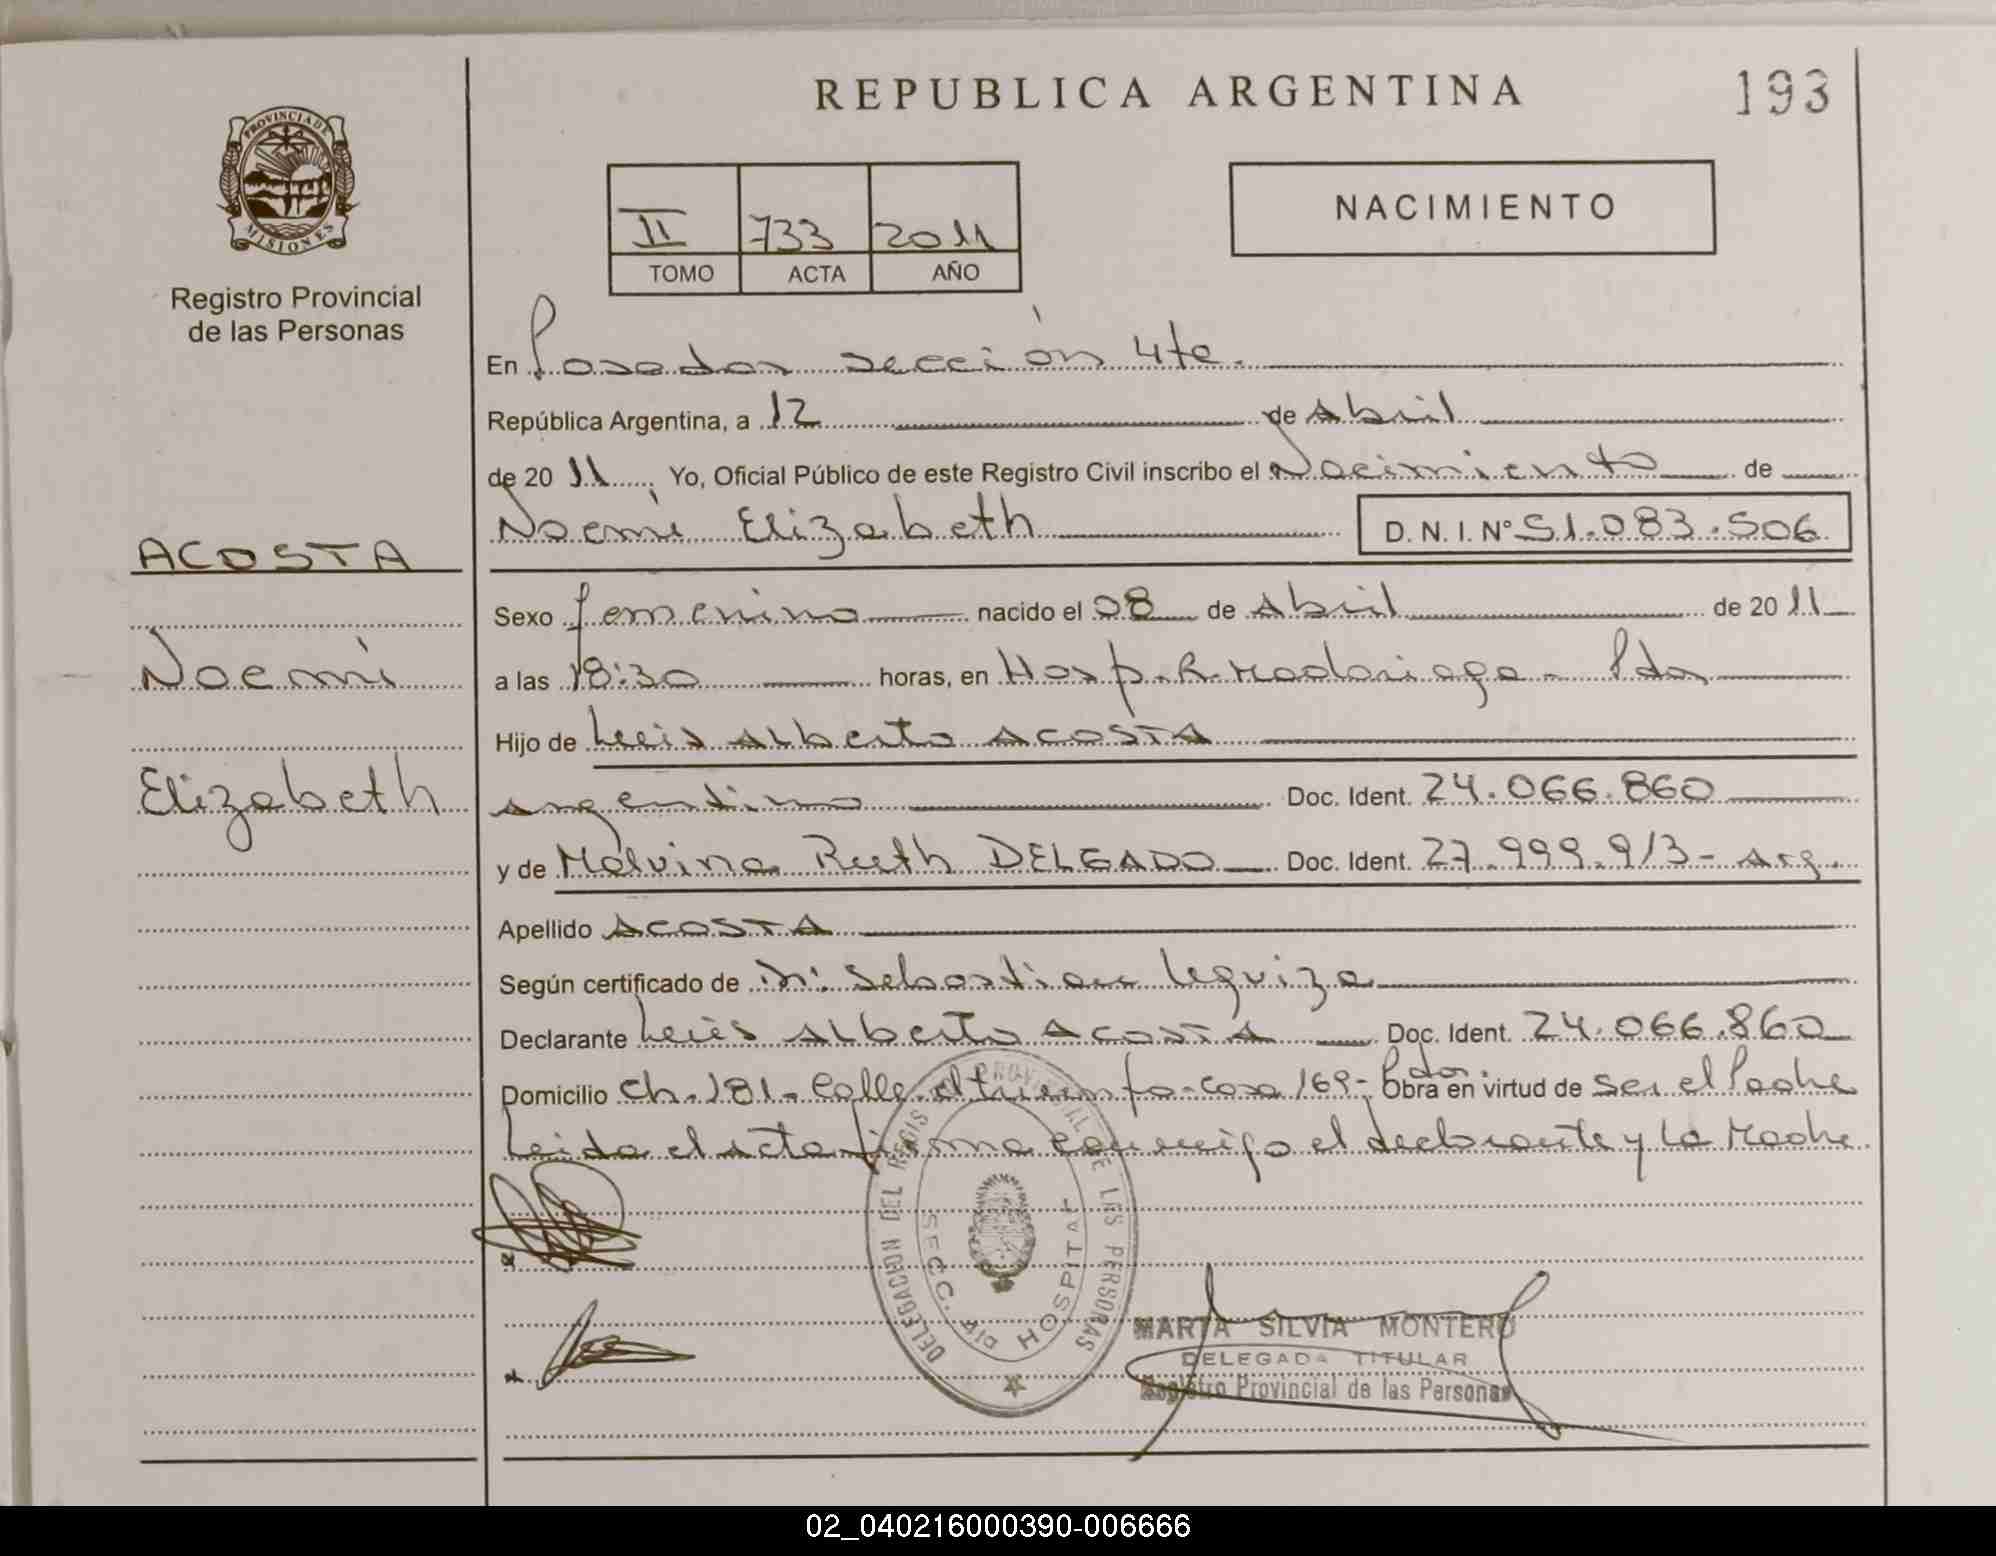 REPUBLICA ARGENTINA
193
PROVINCIA DE
MISIONES
Registro Provincial
de las Personas
II 733 2011
TOMO ACTA AÑO
NACIMIENTO
En Posadas sección 4ta.
República Argentina, a 12 de Abril
de 2011. Yo, Oficial Público de este Registro Civil inscribo el Nacimiento de
Noemí Elizabeth D. N. I. Nº 51.083.506
ACOSTA
Noemí
Elizabeth
Sexo femenino nacido el 08 de Abril de 2011
a las 18:30 horas, en Hosp. R. Madariaga - Pdas
Hijo de Luis Alberto ACOSTA
argentino Doc. Ident. 24.066.860
y de Malvina Ruth DELGADO Doc. Ident. 27.999.913 - Arg.
Apellido ACOSTA
Según certificado de Dr: Sebastian Leguiza
Declarante Luis Alberto ACOSTA Doc. Ident. 24.066.860
Domicilio Ch. 181 - Calle el triunfo - casa 169 - Pdas. Obra en virtud de ser el Padre
Leida el acta firma conmigo el declarante y la Madre
DELEGACION DEL REGISTRO PROVINCIAL DE LAS PERSONAS
SECC. 4ta HOSPITAL
MARTA SILVIA MONTERO
DELEGADA TITULAR
Registro Provincial de las Personas
02_040216000390-006666